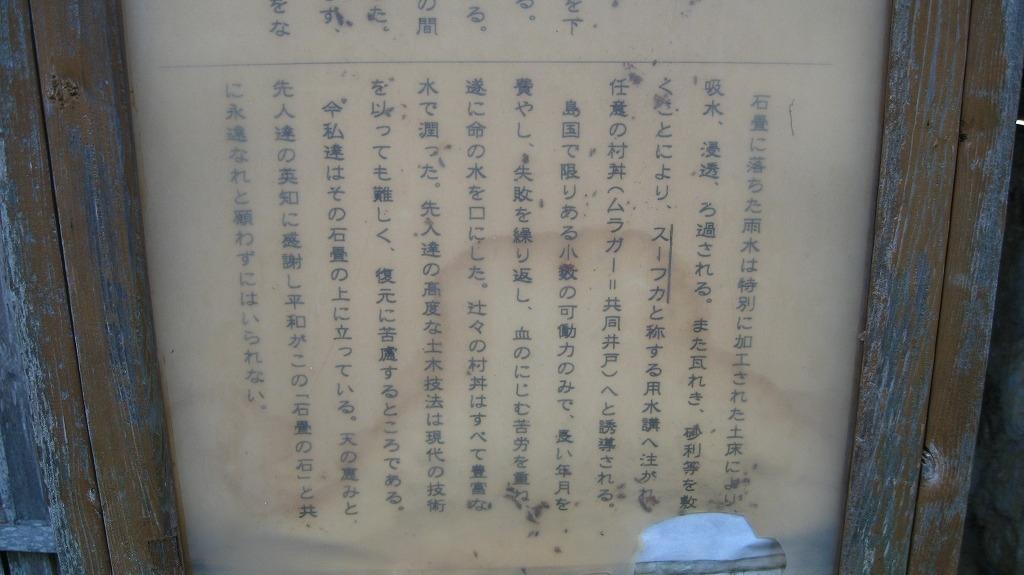 を下
る。
る。
の間
た。
ず、
をな
石畳に落ちた雨水は特別に加工された土床により、
吸水、浸透、ろ過される。また瓦れき、砂利等を敷
くことにより、スーフカと称する用水講へ注がれ
任意の村丼(ムラガー=共同井戸)へと誘導される。
島国で限りある小数の可働力のみで、長い年月を
費やし、失敗を繰り返し、血のにじむ苦労を重ね、
遂に命の水を口にした。辻々の村丼はすべて豊富な
水で潤った。先人達の高度な土木技法は現代の技術
を以っても難しく、復元に苦慮するところである。
今私達はその石畳の上に立っている。天の恵みと、
先人達の英知に感謝し平和がこの「石畳の石」と共、
に永遠なれと願わずにはいられない。